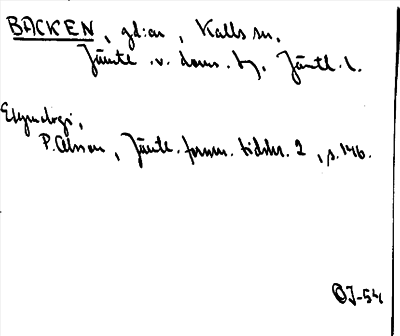 BACKEN, gd:ar, Kalls sn,
Jämtl. v. doms. tg. Jämtl. l.
Etymologi,
P. Olsson, Jämtl. fornm. tidskr. 2, s. 146.
OJ-54